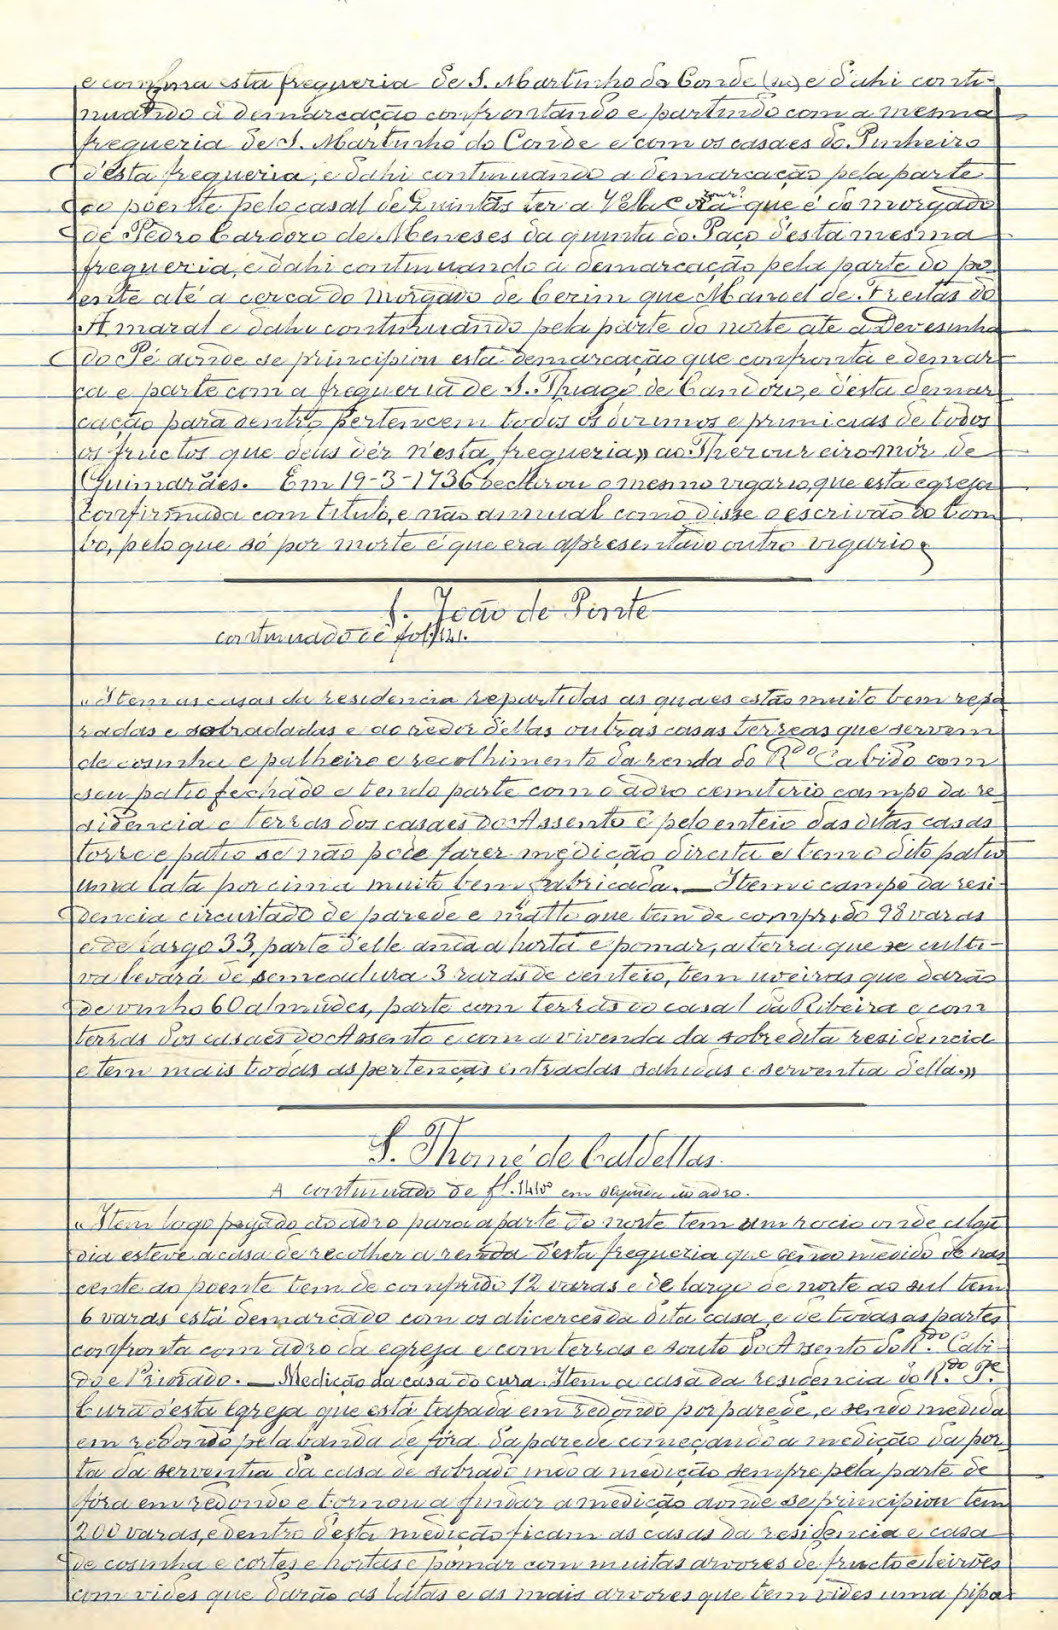 e confina esta freguezia de S. Martinho do Conde (sic) e d'ahi conti-
nuando a demarcação confrontando e partindo com a mesma
freguezia de S. Martinho do Conde e com os casaes do Pinheiro
d'esta freguezia, e dahi continuando a demarcação pela parte
do poente pelo casal de Quintãs ter a que é do morgado
de Pedro Cardozo de Meneses da quinta do Paço d'esta mesma
freguezia, e dahi continuando a demarcação pela parte do po-
ente até a cerca do Morgado de Cerim que Manoel de Freitas do
Amaral e dahi continuando pela parte do norte ate a Devesinha
do Pé aonde se principiou esta demarcação que confronta e demar-
ca e parte com a freguezia de S. Thiago de Candozo, e d'esta demar-
cação para dentro pertencem todos os dizimos e primicias de todos
os fructos que deus dér n'esta freguezia» ao Thezoureiro-mór de
Guimarães. Em 19-3-1736 declarou o mesmo vigario, que esta egreja
confirmada com titulo, e não annual como disse o escrivão do tom-
bo, pelo que só por morte é que era apresentado outro vigario.
S. João de Ponte
continuado de fol. 141.
«Item as casas da residencia repartidas as quaes estão muito bem repa-
radas e sobradadas e ao redor d'ellas outras casas terreas que servem
de cosinha e palheiro e recolhimento da renda do R.do Cabido com
seu patio fechado e tendo parte com o adro cemiterio campo da re-
sidencia e terras dos casaes do Assento e pelo enteio das ditas casas
torre e patio se não pode fazer medição direita e tem o dito patio
uma lata por cima muito bem fabricada. — Item o campo da resi-
dencia circuitado de parede e matto que tem de comprido 98 varas
e de largo 33, parte d'elle anda a horta e pomar, a terra que se culti-
va levará de semeadura 3 razas de centeio, tem uveiras que darão
de vinho 60 almudes, parte com terras do casal da Ribeira e com
terras dos casaes do Assento e com a vivenda da sobredita residencia
e tem mais todas as pertenças entradas sahidas e serventia d'ella.»
S. Thomé de Caldellas
A continuado de fl. 141 v.º em seguida ao adro.
«Item logo pegado ao adro para a parte do norte tem um rocio onde algũ
dia esteve a casa de recolher a renda d'esta freguezia que sendo medido de nas-
cente ao poente tem de comprido 12 varas e de largo de norte ao sul tem
6 varas está demarcado com os alicerces da dita casa, e de todas as partes
confronta com adro da egreja e com terras e souto do Assento do R.do Cabi-
do e Priorado. — Medição da casa do cura. Item a casa da residencia do R.do P.e
Cura d'esta Egreja que está tapada em redondo por parede, e sendo medida
em redondo pela banda de fóra da parede começando a medição da por-
ta da serventia da casa de sobrado indo a medição sempre pela parte de
fóra em redondo e tornou a findar a medição aonde se principiou tem
200 varas, e dentro d'esta medição ficam as casas da residencia e casa
de cosinha e cortes e hortas e pomar com muitas arvores de fructo e leirões
com vides que darão as latas e as mais arvores que tem vides uma pipa